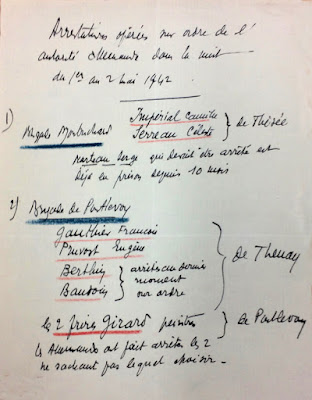 Arrestations opérées sur ordre de l'
autorité Allemande dans la nuit
du 1er au 2 mai 1942
1) Brigade Montrichard Impérial Camille
Serreau Céleste } de Thésée
Marteau Serge qui devait être arrêté est
déjà en prison depuis 10 mois
2) Brigade de Pontlevoy
Gauthier François
Pruvost Eugène
Berthin
Baudoin } arrêtés au dernier moment sur ordre
de Thenay
les 2 frères Girard peintres } de Pontlevoy
les Allemands ont fait arrêter les 2
ne sachant pas lequel choisir -